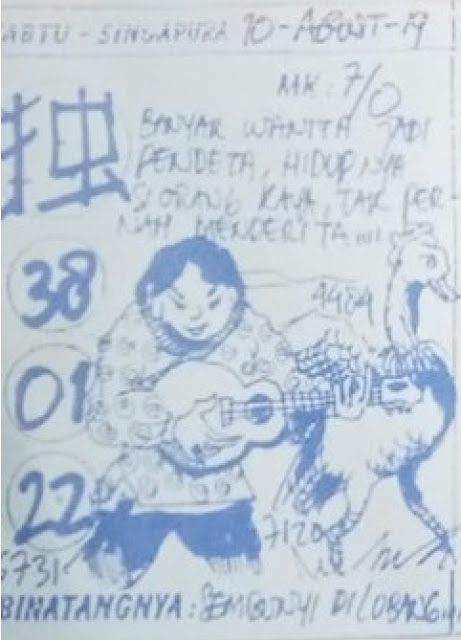 ABTU - SINGAPURA 10-AGUST-19
MK: 7/0
独
BANYAK WANITA JADI
PENDETA, HIDUPNYA
SEORANG KAYA, TAK PER-
NAH MENDERITA
38
4484
01
22
7120
5731
BINATANGNYA: SEMBUNYI DI LOBANG...